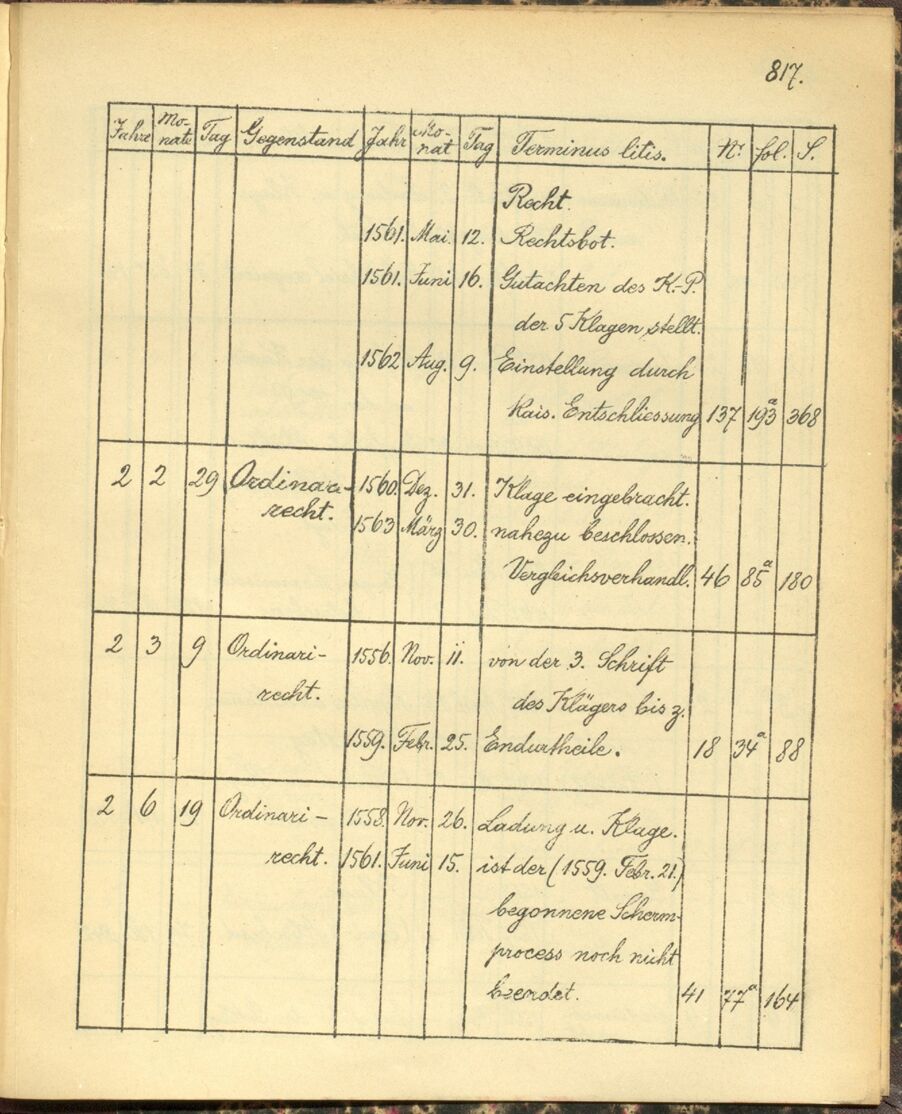 817.
Jahre Mo-nate Tag Gegenstand Jahr Mo-nat Tag Terminus litis. Nr fol. S.
Recht.
1561. Mai. 12. Rechtsbot.
1561. Juni 16. Gutachten des K.-P.
der 5 Klagen stellt.
1562 Aug. 9. Einstellung durch
Kais. Entschliessung 137 193a 368
2 2 29 Ordinari- 1560. Dez. 31. Klage eingebracht.
recht. 1563 März 30. nahezu beschlossen.
Vergleichsverhandl. 46 85a 180
2 3 9 Ordinari- 1556. Nov. 11. von der 3. Schrift
recht. des Klägers bis z.
1559. Febr. 25. Endurtheile. 18 34a 88
2 6 19 Ordinari- 1558. Nov. 26. Ladung u. Klage.
recht. 1561. Juni 15. ist der (1559. Febr. 21.)
begonnene Scherm-
process noch nicht
beendet. 41 77a 164